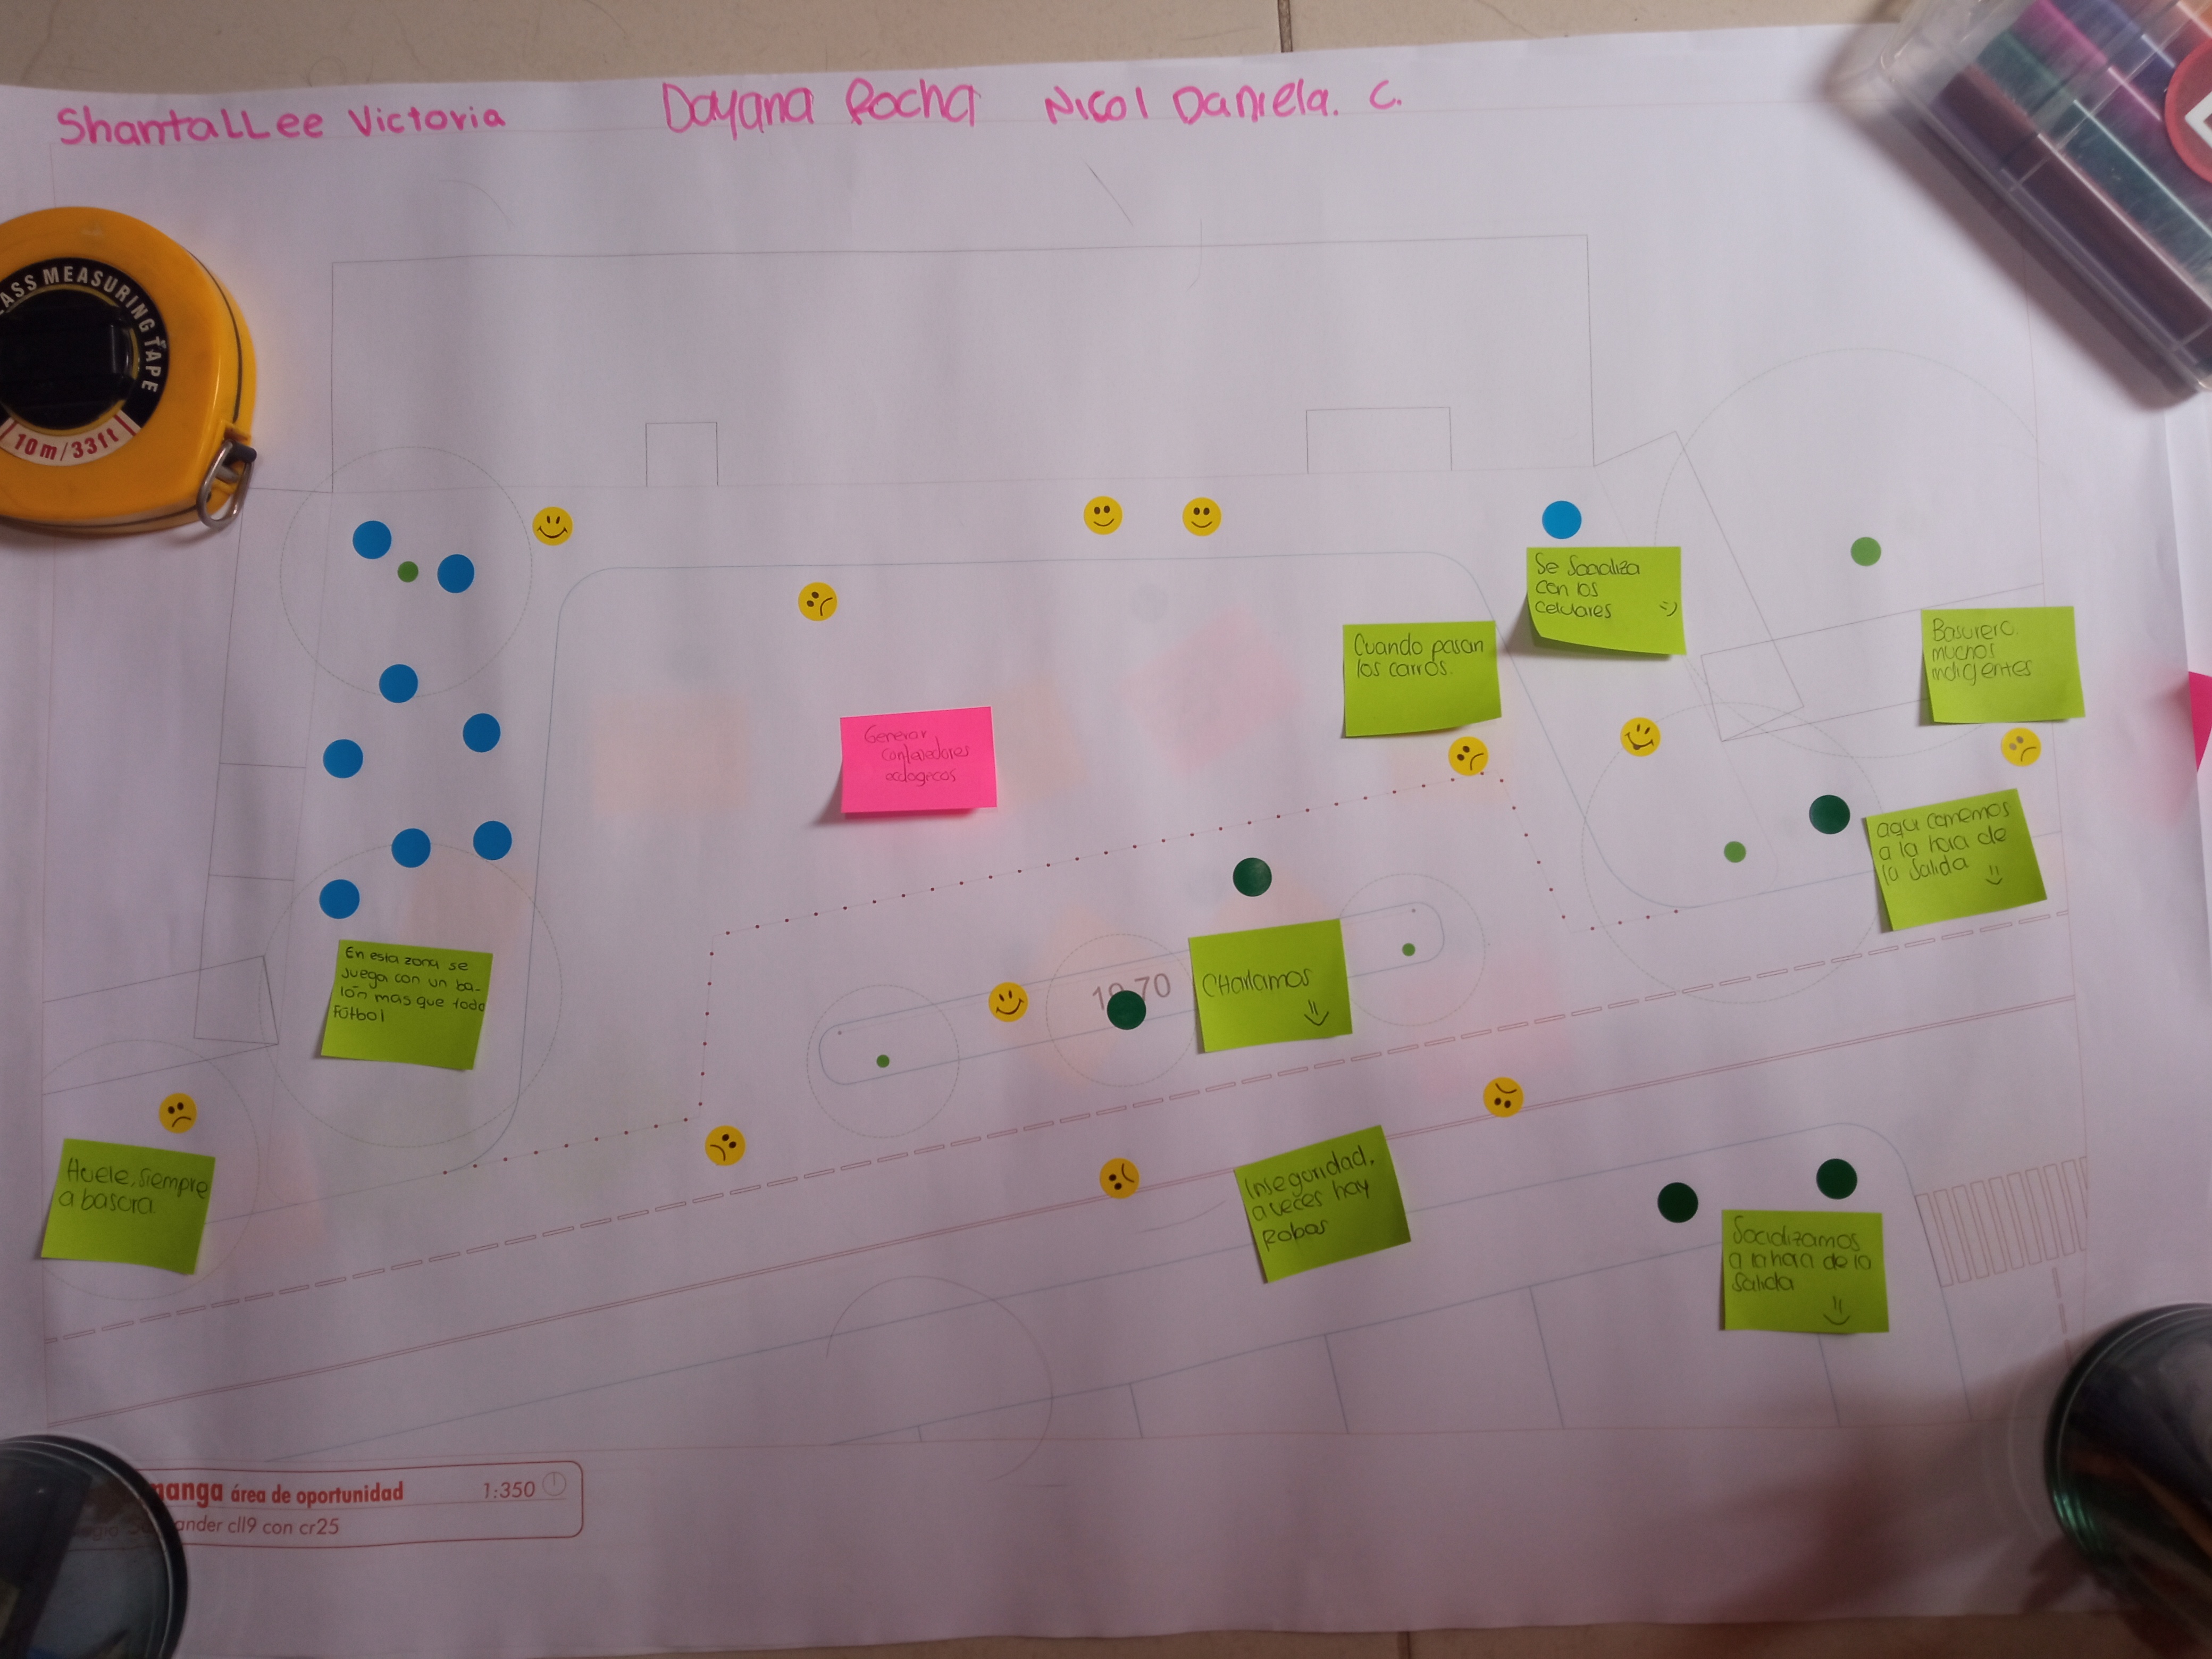 ShantalLee Victoria Dayana Rocha Nicol Daniela. C.
ASS MEASURING TAPE
10m/33ft
Se Socializa
con los
celulares =)
Cuando pasan
los carros.
Basurero.
muchos
indigentes
Generar
contenedores
aqui comemos
a la hora de
la Salida
En esta zona se
Juega con un ba-
lón mas que todo
Fútbol
CHarlamos
Huele, siempre
a basura.
Inseguridad,
a veces hay
Robos
Socializamos
a la hora de la
Salida
manga área de oportunidad 1:350
ander cll9 con cr25